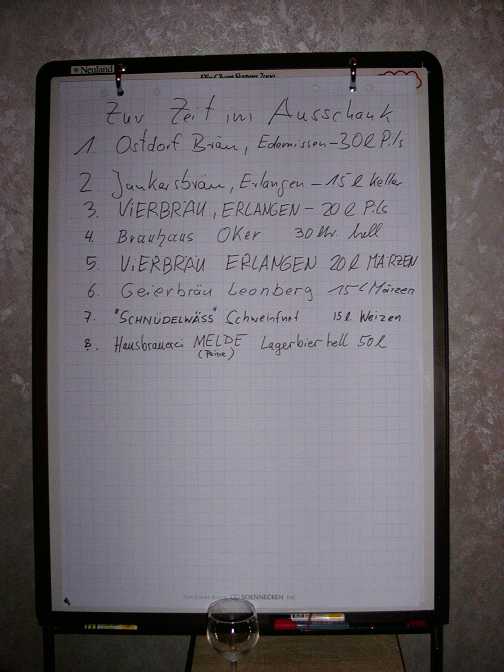 Neuland
Zur Zeit im Ausschank
1. Ostdorf Bräu, Edemissen - 30 l Pils
2 Junkersbräu, Erlangen - 15 l Keller
3. VIERBRÄU, ERLANGEN - 20 l Pils
4. Brauhaus Oker 30 ltr. hell
5 VIERBRÄU ERLANGEN 20 l MÄRZEN
6. Geierbräu Leonberg 15 l Märzen
7. "SCHNÜDELWÄSS" Schweinfurt 15 l Weizen
8. Hausbrauerei MELDE Lagerbier hell 50 l
(Peine)
SOENNECKEN